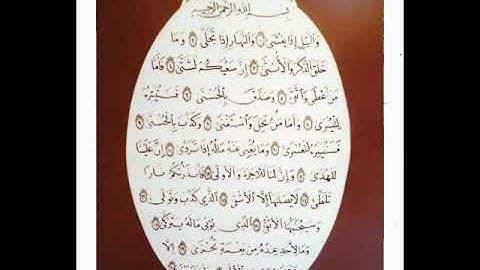 بسم الله الرحمن الرحيم
واليل إذا يغشى ۝ والنهار إذا تجلى ۝ وما
خلق الذكر والأنثى ۝ إن سعيكم لشتى ۝ فأما
من أعطى واتقى ۝ وصدق بالحسنى ۝ فسنيسره
لليسرى ۝ وأما من بخل واستغنى ۝ وكذب بالحسنى ۝
فسنيسره للعسرى ۝ وما يغنى عنه ماله إذا تردى ۝ إن علينا
للهدى ۝ وإن لنا للآخرة والأولى ۝ فأنذرتكم نارا
تلظى ۝ لا يصلها إلا الأشقى ۝ الذى كذب وتولى ۝
وسيجنبها الأتقى ۝ الذى يؤتى ماله يتزكى ۝
وما لأحد عنده من نعمة تجزى ۝ إلا